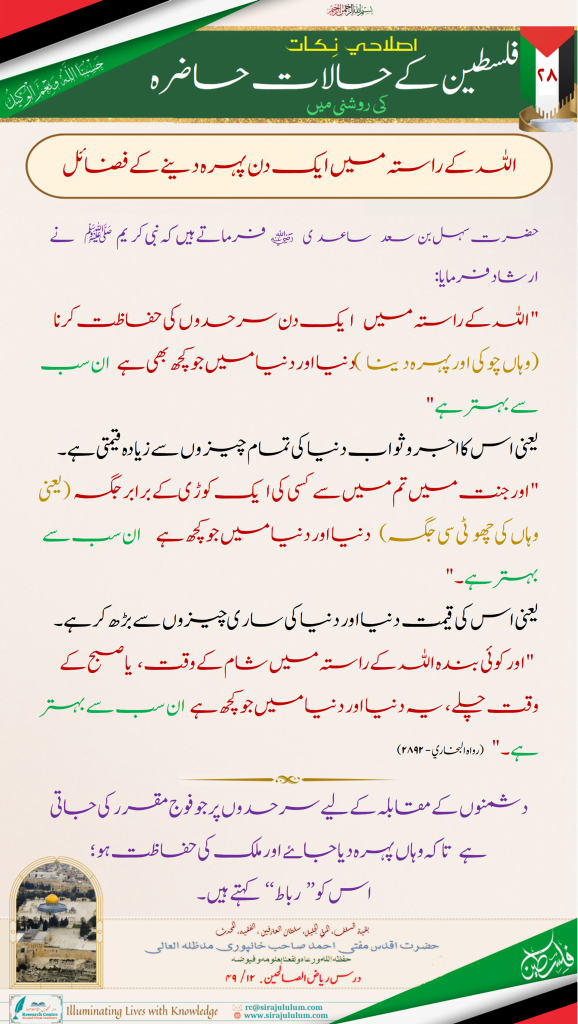 بسم اللہ الرحمن الرحیم
حَسْبُنَا اللّٰهُ وَنِعْمَ الْوَكِيْل
اصلاحي نِکات
فلسطین کے حالات حاضرہ
کی روشنی میں
۲۸
اللہ کے راستہ میں ایک دن پہرہ دینے کے فضائل
حضرت سہل بن سعد ساعدی رضی اللہ عنہ فرماتے ہیں کہ نبی کریم ﷺ نے
ارشاد فرمایا:
"اللہ کے راستہ میں ایک دن سرحدوں کی حفاظت کرنا
(وہاں چوکی اور پہرہ دینا) دنیا اور دنیا میں جو کچھ بھی ہے ان سب
سے بہتر ہے"
یعنی اس کا اجر و ثواب دنیا کی تمام چیزوں سے زیادہ قیمتی ہے۔
"اور جنت میں تم میں سے کسی کی ایک کوڑی کے برابر جگہ (یعنی
وہاں کی چھوٹی سی جگہ) دنیا اور دنیا میں جو کچھ ہے ان سب سے
بہتر ہے۔"
یعنی اس کی قیمت دنیا اور دنیا کی ساری چیزوں سے بڑھ کر ہے۔
"اور کوئی بندہ اللہ کے راستہ میں شام کے وقت، یا صبح کے
وقت چلے، یہ دنیا اور دنیا میں جو کچھ ہے ان سب سے بہتر
ہے۔" (رواه البخاري - ۲۸۹۲)
دشمنوں کے مقابلہ کے لیے سرحدوں پر جو فوج مقرر کی جاتی
ہے تاکہ وہاں پہرہ دیا جائے اور ملک کی حفاظت ہو؛
اس کو "رباط" کہتے ہیں۔
بقیۃ السلف، المربی الجلیل، سلطان العارفین، الفقیہ، المحدث
حضرت اقدس مفتی احمد صاحب خانپوری مدظلہ العالی
حفظه الله ورعاه ونفعنا بعلومه وفيوضه
درس ریاض الصالحین۔ ۱۲/ ۴۹
فلسطین
Research Centre
Illuminating Lives with Knowledge
rc@sirajululum.com
www.sirajululum.com